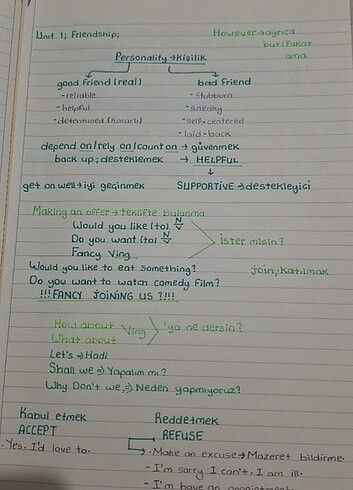 Unit 1; Friendship;
However→ayrıca
but/fakat
ama
Personality→Kişilik
good friend (real)
bad friend
-reliable
- Stubborn
-helpful
- sneaky
-determined (kararlı)
- self-centered
- laid-back
depend on/rely on/count on → güvenmek
back up; desteklemek → HELPFUL
get on well→iyi geçinmek
SUPPORTIVE→destekleyici
Making an offer→teklifte bulunma
Would you like (to) N V
Do you want (to) N V
Fancy Ving...
ister misin?
Would you like to eat something?
join; Katılmak
Do you want to watch comedy film?
!!!FANCY JOINING US ?!!!
How about
What about
Ving
'ya ne dersin?
Let's ⇒ Hadi
Shall we ⇒ Yapalım mı?
Why Don't we ⇒ Neden yapmıyoruz?
Kabul etmek
Reddetmek
ACCEPT
REFUSE
. Yes, I'd love to.
. Make an excuse→ Mazeret bildirme.
- I'm sorry I can't. I am ill.
- I'm have an appointment